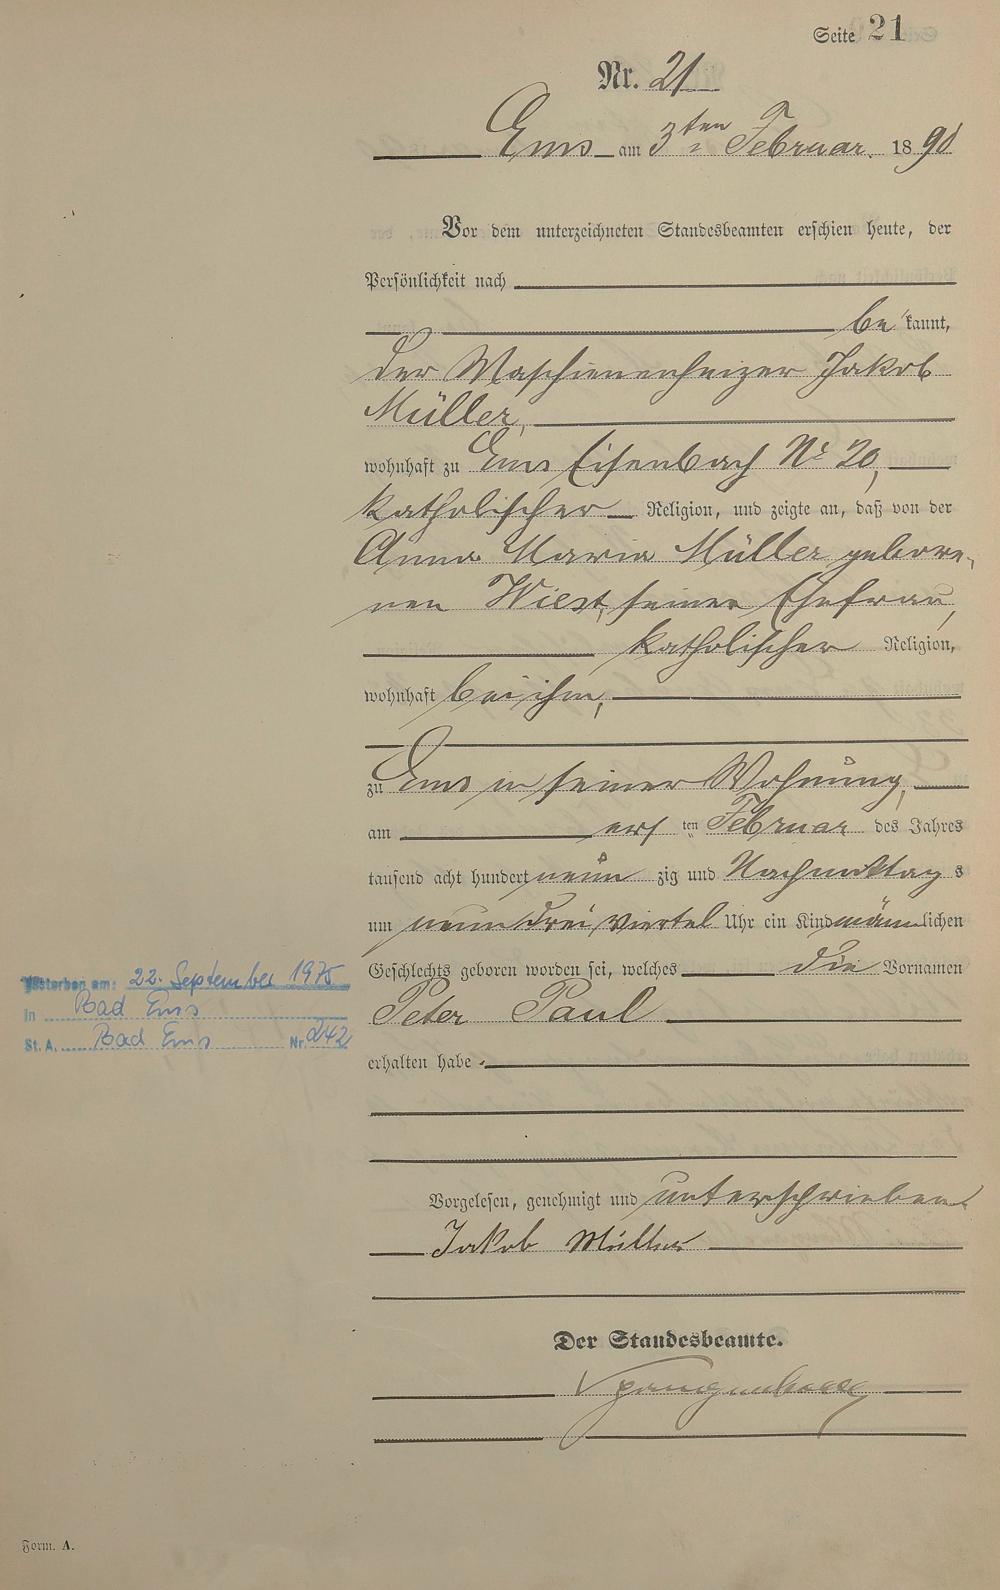 Seite 21
Nr. 21
Ems am 3ten Februar. 1890
Vor dem unterzeichneten Standesbeamten erschien heute, der
Persönlichkeit nach
be kannt,
der Maschienenheizer Jakob
Müller,
wohnhaft zu Ems Eisenbach No 20,
katholischer Religion, und zeigte an, daß von der
Anna Maria Müller gebore-
nen Wiest, seiner Ehefrau,
katholischer Religion,
wohnhaft bei ihm,
zu Ems in seiner Wohnung,
am ersten Februar des Jahres
tausend acht hundert neun zig und Nachmittag s
um neun drei viertel Uhr ein Kind männlichen
Geschlechts geboren worden sei, welches die Vornamen
Peter Paul
erhalten habe.
Gestorben am: 22. September 1975
in Bad Ems
St. A. Bad Ems Nr. 242
Vorgelesen, genehmigt und unterschrieben
Jakob Müller
Der Standesbeamte.
Form. A.